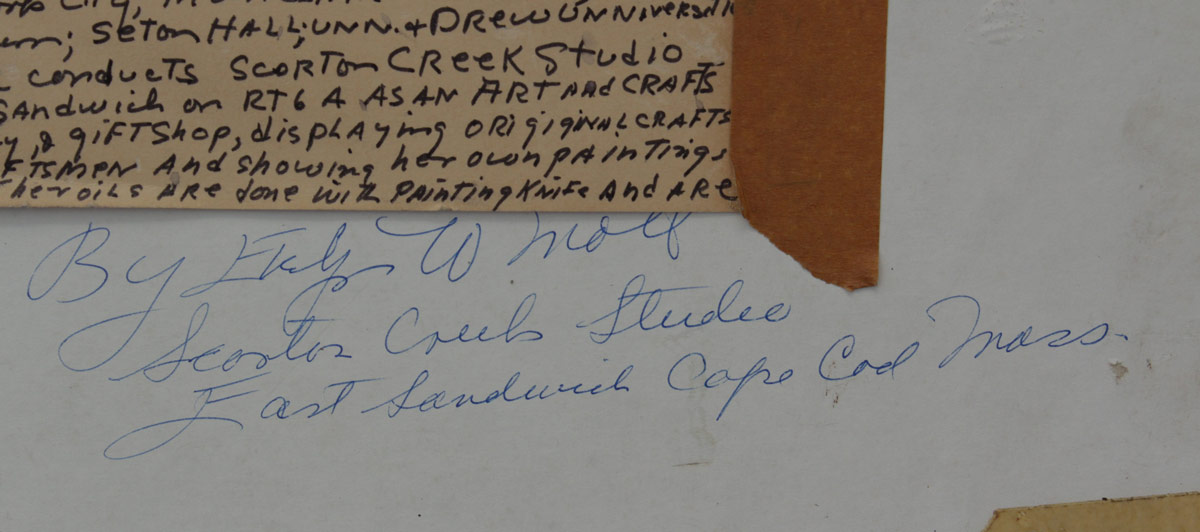 City,
; Seton HALL; UNN. + DREW UNNiversi
conducts SCORTON CREEK Studio
SANdwich on RT 6 A AS AN ART ANd CRAFTS
y & giFT Shop, displAying ORigiginAL CRAFTS
FTSMEN ANd showing her own pAintings
her oils ARE done with PAINTING KNIFE ANd ARE
By W
Scorton Creek Studio
East Sandwich Cape Cod Mass.